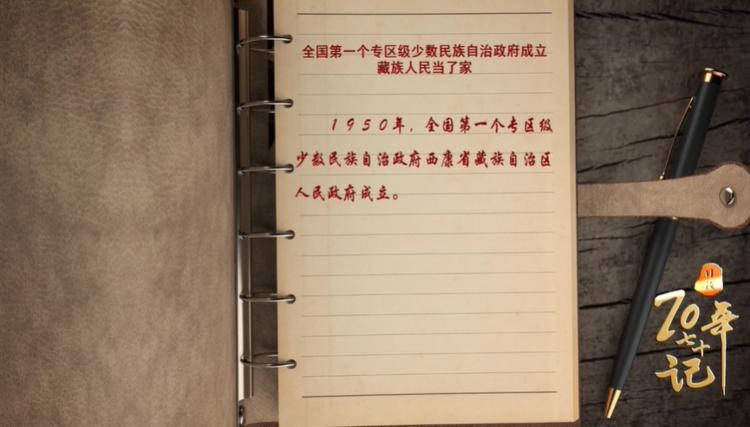 全国第一个专区级少数民族自治政府成立
藏族人民当了家
1950年，全国第一个专区级
少数民族自治政府西康省藏族自治区
人民政府成立。
70年
七十
记